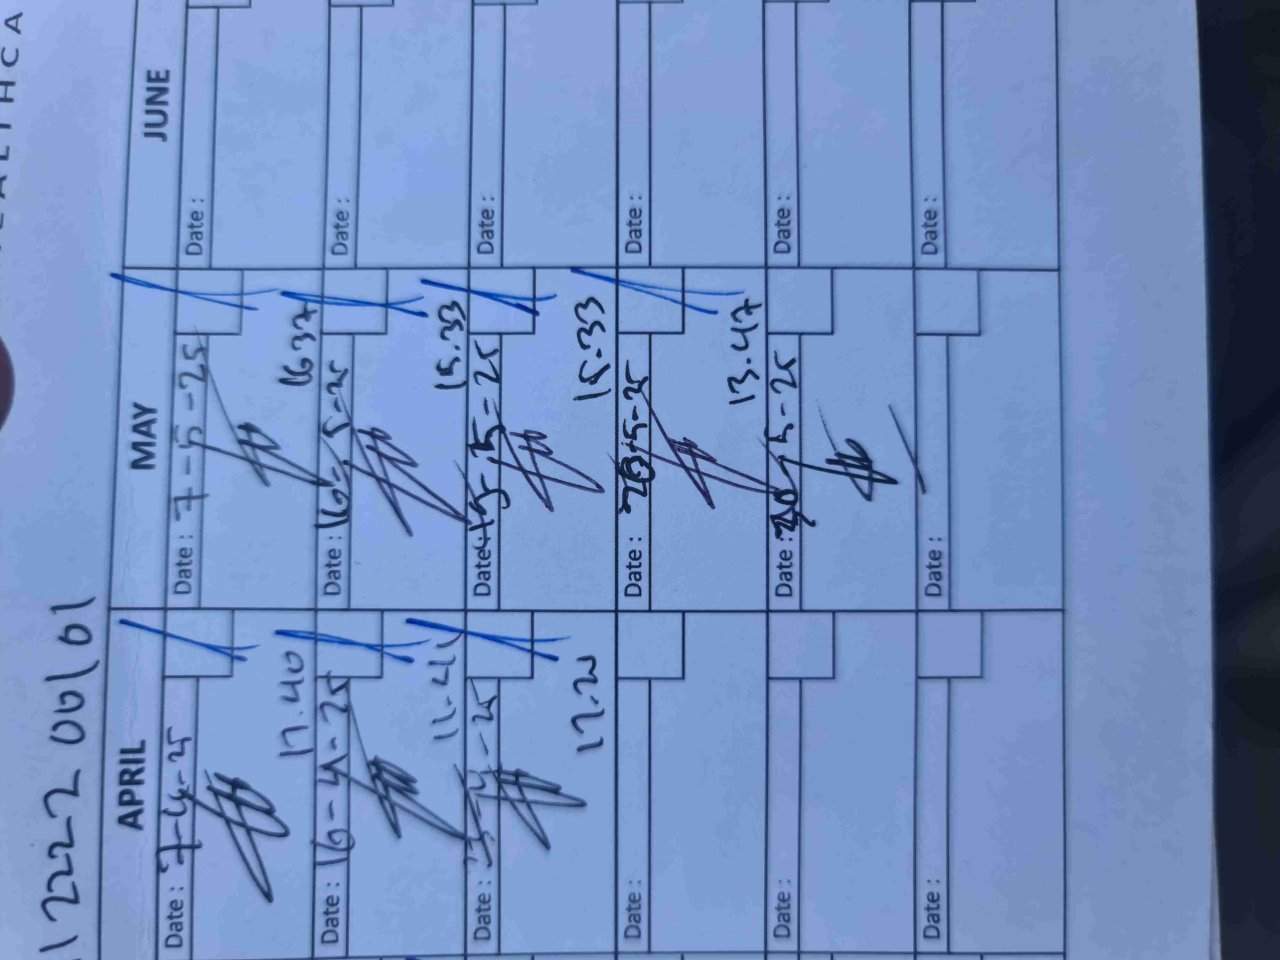 1222 06/01
APRIL MAY JUNE
Date : 7-4-25 Date : 7-5-25 Date :
17.40 1637
Date : 16-4-25 Date : 16-5-25 Date :
15.33
Date : Date : Date :
17.21 15.33
Date : Date : Date :
13.47
Date : Date : 30-5-25 Date :
Date : Date : Date :